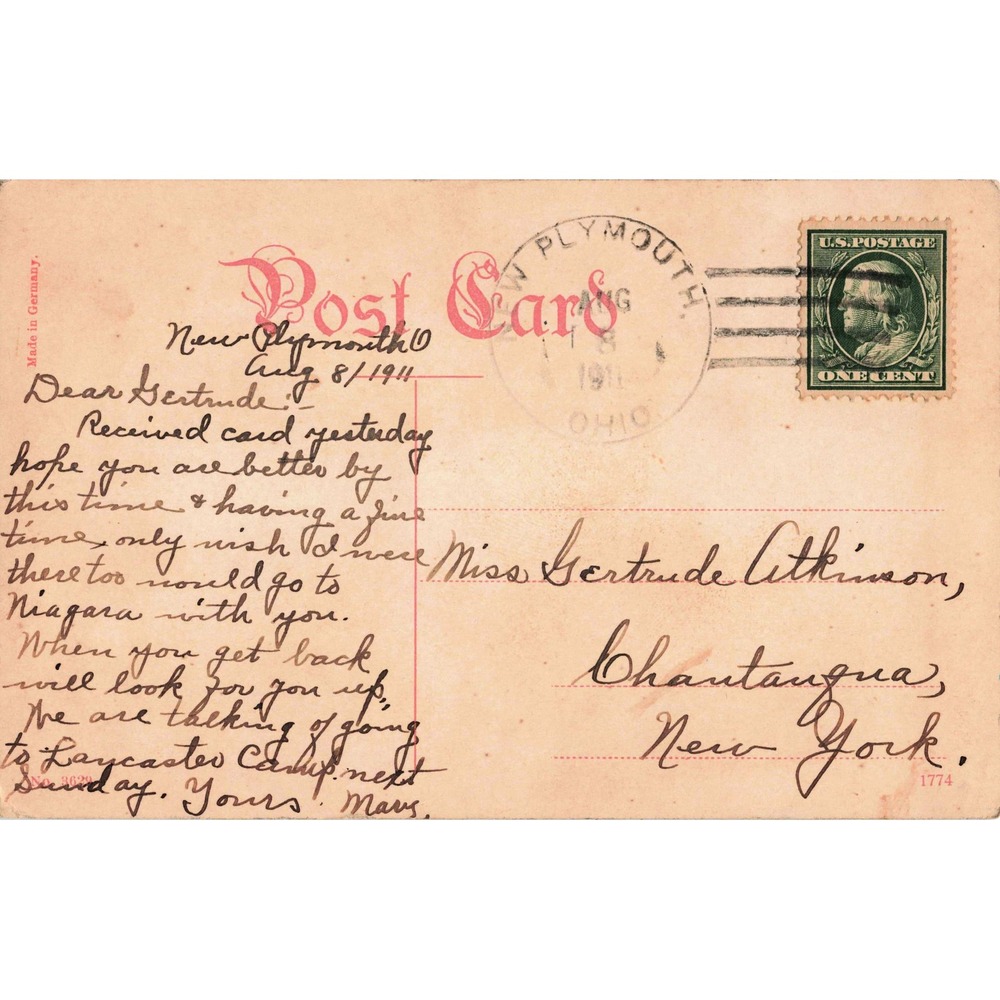 Made in Germany.
Post Card
NEW PLYMOUTH.
AUG
8
1911
OHIO
U.S. POSTAGE
ONE CENT
New Plymouth O
Aug 8/1911
Dear Gertrude:-
Received card yesterday
hope you are better by
this time & having a fine
time, only wish I were
there too would go to
Niagara with you.
When you get back
will look for you up,
We are talking of going
to Lancaster Camp. next
Sunday. Yours Mary.
Miss Gertrude Atkinson,
Chautauqua,
New York.
No. 3629
1774